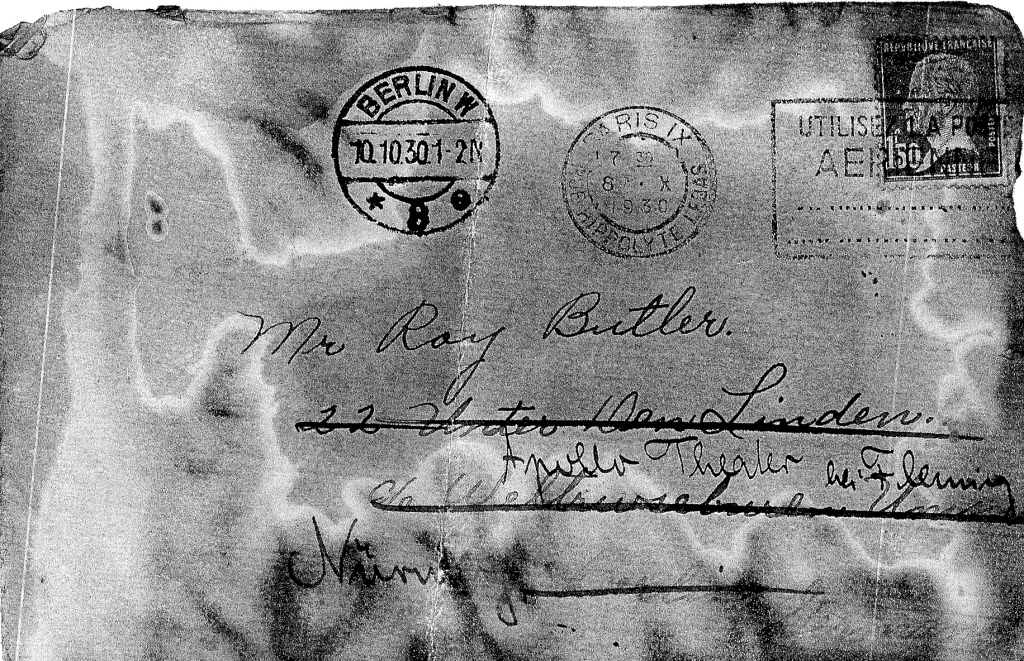 BERLIN W
10.10.30.1-2N
* 8 e
PARIS IX
17 30
8 · X
1930
RUE HIPPOLYTE LEBAS
REPUBLIQUE FRANÇAISE
POSTES
1F50
PASTEUR
UTILISEZ LA POSTE
AERIENNE
Mr Roy Butler.
22 Unter Den Linden.
Apollo Theater bei Fleming
c/o